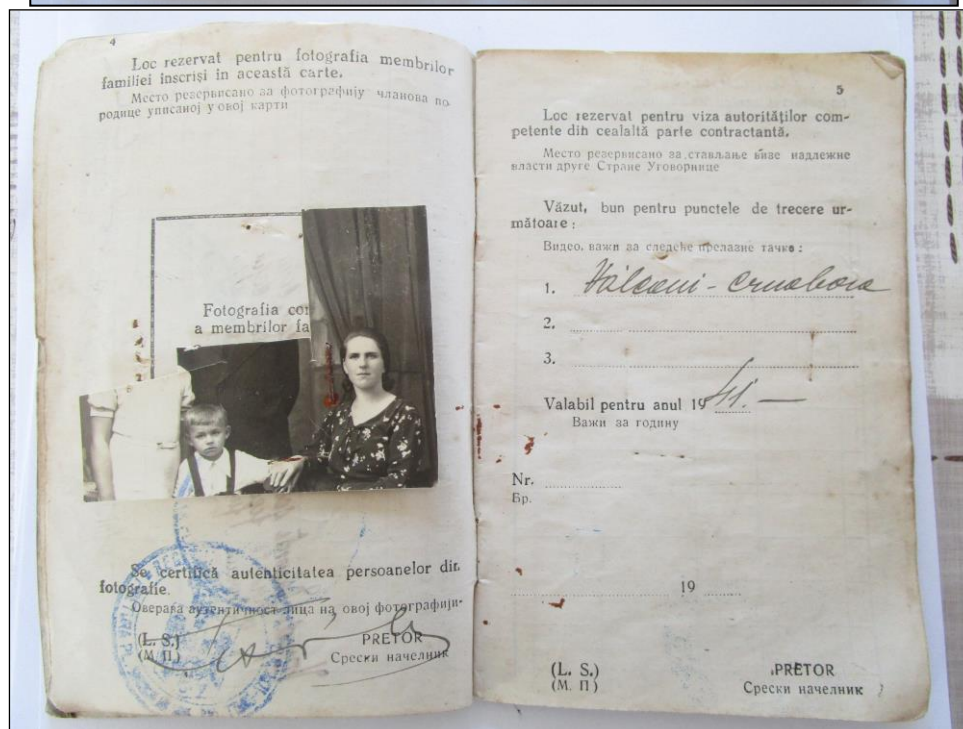 4
Loc rezervat pentru fotografia membrilor
familiei înscriși in această carte.
Место резервисано за фотографију чланова по-
родице уписаној у овој карти
Fotografia co
a membrilor fa
Se certifică autenticitatea persoanelor din
fotografie.
Оверава аутентичност лица на овој фотографији.
(L. S.) PRETOR
(М. П.) Срески начелник
5
Loc rezervat pentru viza autorităților com-
petente din cealaltă parte contractantă.
Место резервисано за стављање визе надлежне
власти друге Стране Уговорнице
Văzut, bun pentru punctele de trecere ur-
mătoare :
Видео, важи за следеће прелазне тачке :
1. Vâlcani - Crnabara
2.
3.
Valabil pentru anul 1941.—
Важи за годину
Nr.
Бр.
19
(L. S.) PRETOR
(М. П) Срески начелник